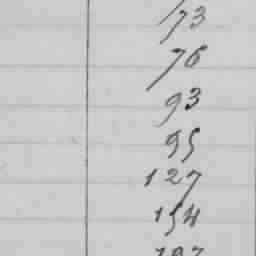 73
76
93
95
127
154